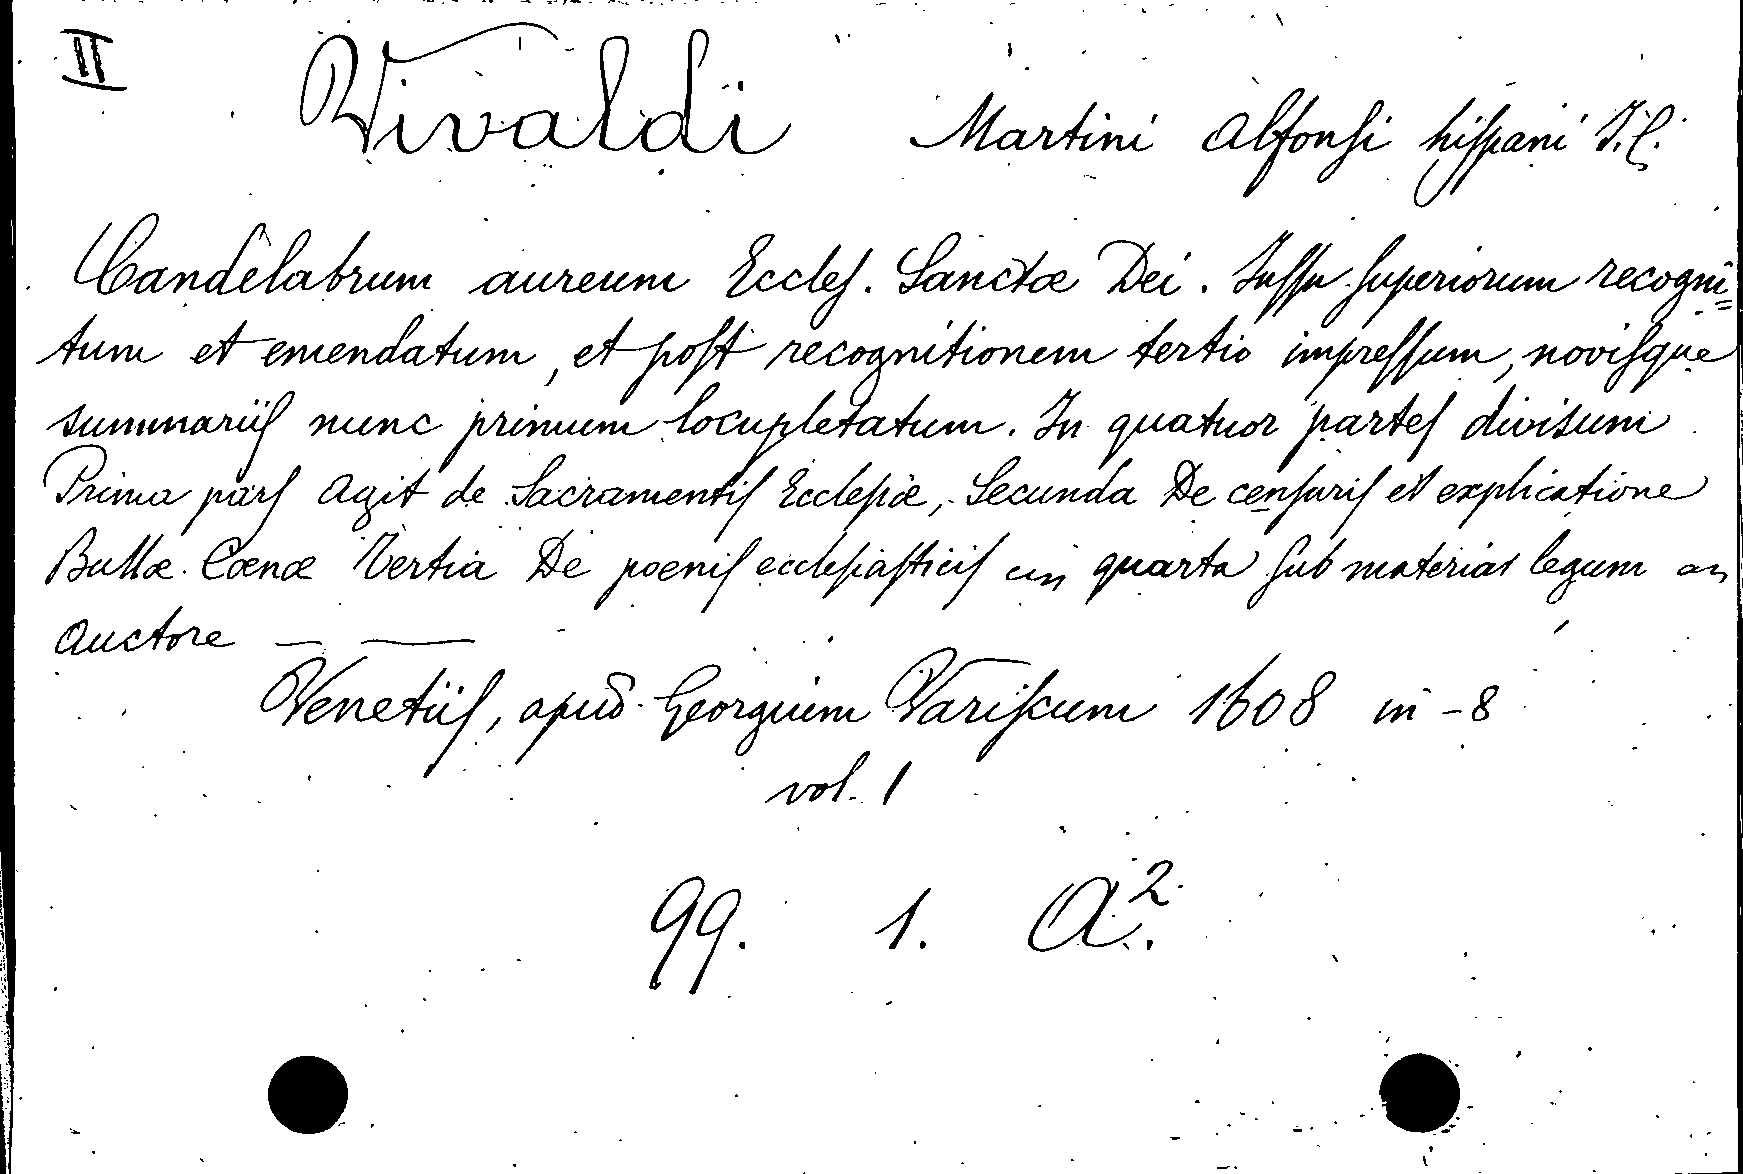 II Vivaldi Martini Alfonsi hispani J.C.
Candelabrum aureum Eccles. Sanctæ Dei. Jussu superiorum recogni=
tum et emendatum, et post recognitionem tertio impressum, novisque
summariis nunc primum locupletatum. In quatuor partes divisum
Prima pars agit de Sacramentis Ecclesiæ, Secunda De censuris et explicatione
Bullæ Cœnæ Tertia De poenis ecclesiasticis quarta sub materias legum
auctore — —
Venetiis, apud Georgium Variscum 1608 in-8
vol. 1
99. 1. A2.